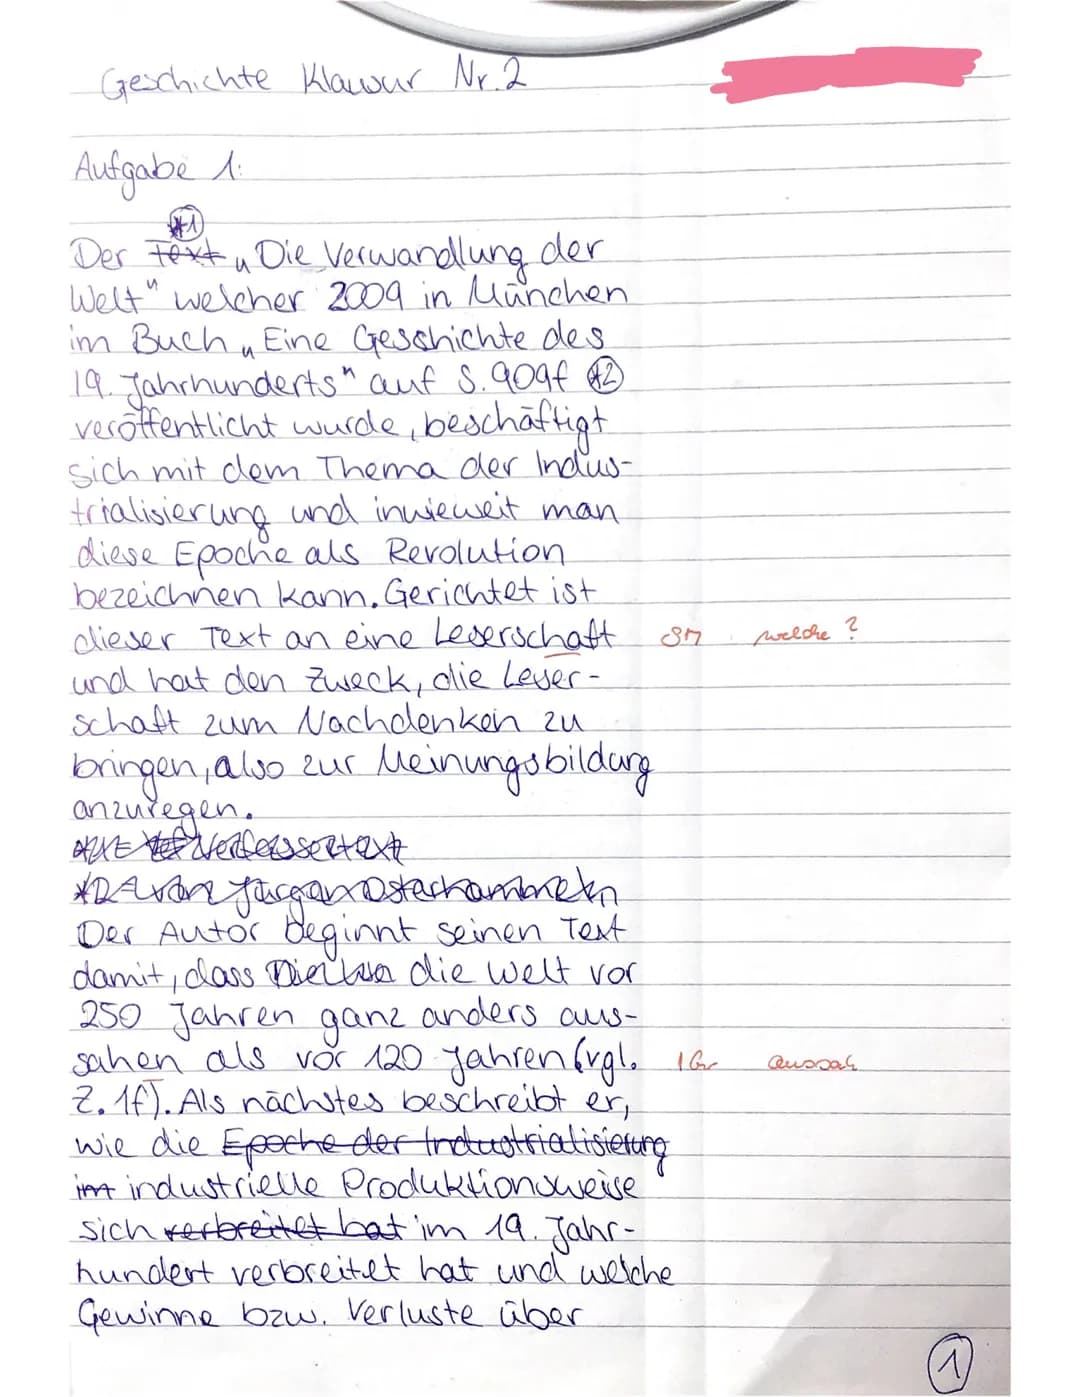 Geschichte Klausur Nr. 2
Aufgabe 1:
*1
Der Text „Die Verwandlung der
Welt" welcher 2009 in München
im Buch „Eine Geschichte des
19. Jahrhunderts" auf S. 909f *2
veröffentlicht wurde, beschäftigt
sich mit dem Thema der Indus-
trialisierung und inwieweit man
diese Epoche als Revolution
bezeichnen kann. Gerichtet ist
dieser Text an eine Leserschaft SM welche ?
und hat den Zweck, die Leser-
schaft zum Nachdenken zu
bringen, also zur Meinungsbildung
anzuregen.
Verfassertext
*2 von Jürgen Osterhammel
Der Autor beginnt seinen Text
damit, dass die Welt vor
250 Jahren ganz anders aus-
sahen als vor 120 Jahren (vgl. 1 Gr aussah
Z. 1f). Als nächstes beschreibt er,
wie die Epoche der Industrialisierung
im industrielle Produktionsweise
sich verbreitet hat im 19. Jahr-
hundert verbreitet hat und welche
Gewinne bzw. Verluste über
1